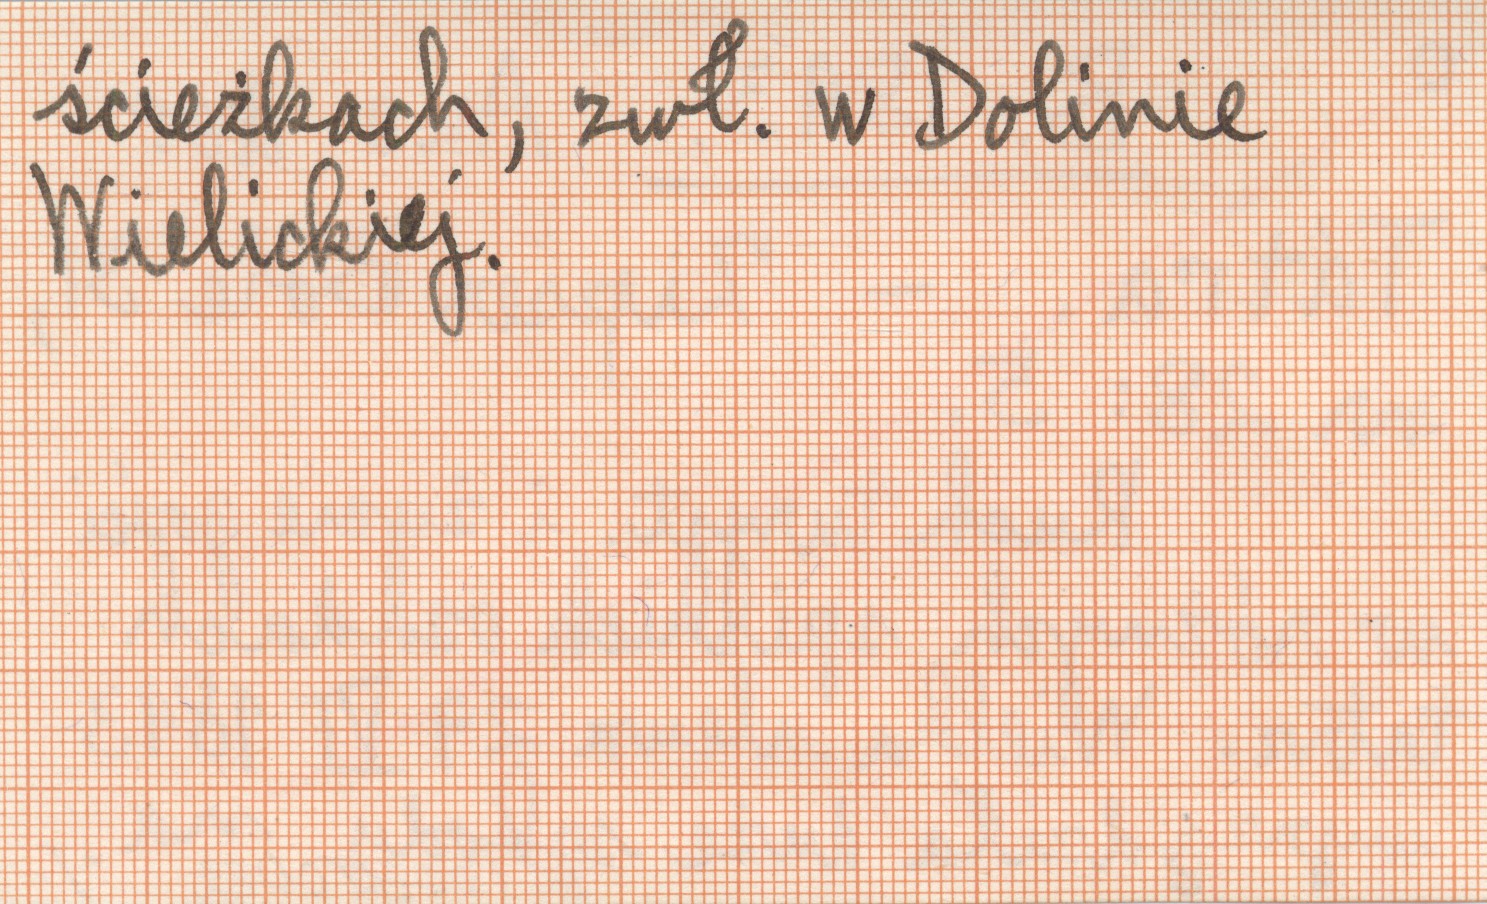 ścieżkach, zwł. w Dolinie
Wielickiej.